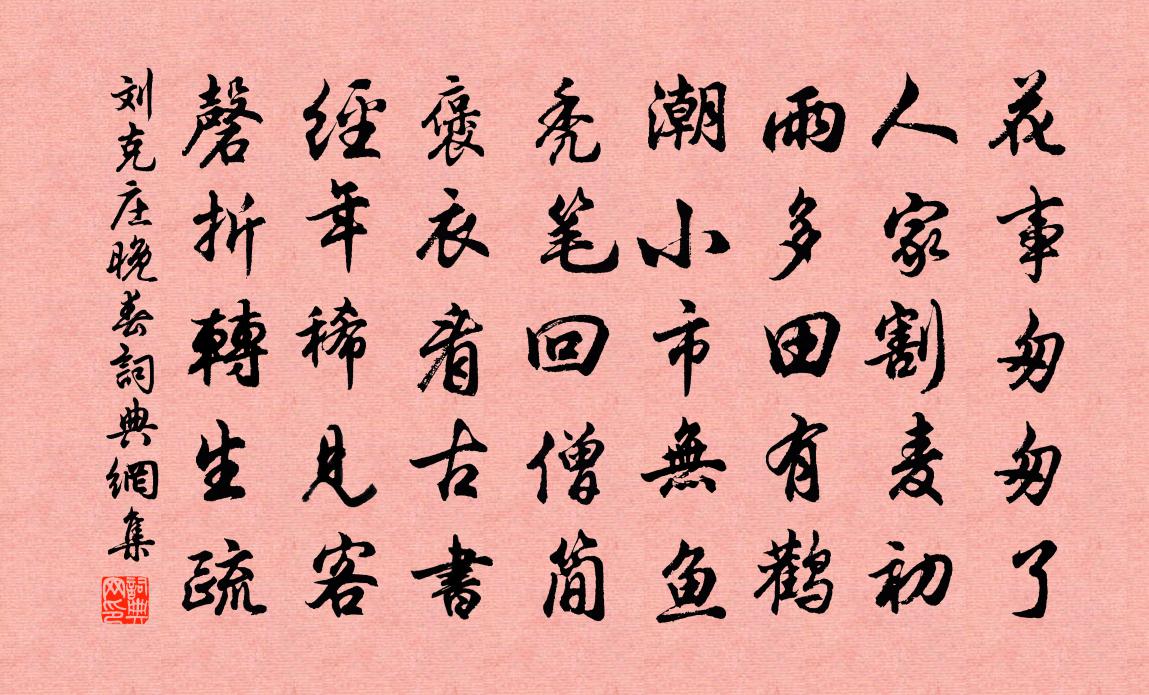 花事匆匆了
人家割麦初
雨多田有鹳
潮小市無鱼
秃笔回僧简
褒衣看古書
經年稀見客
磬折轉生疏
刘克庄晚春詞典網集
詞典网印